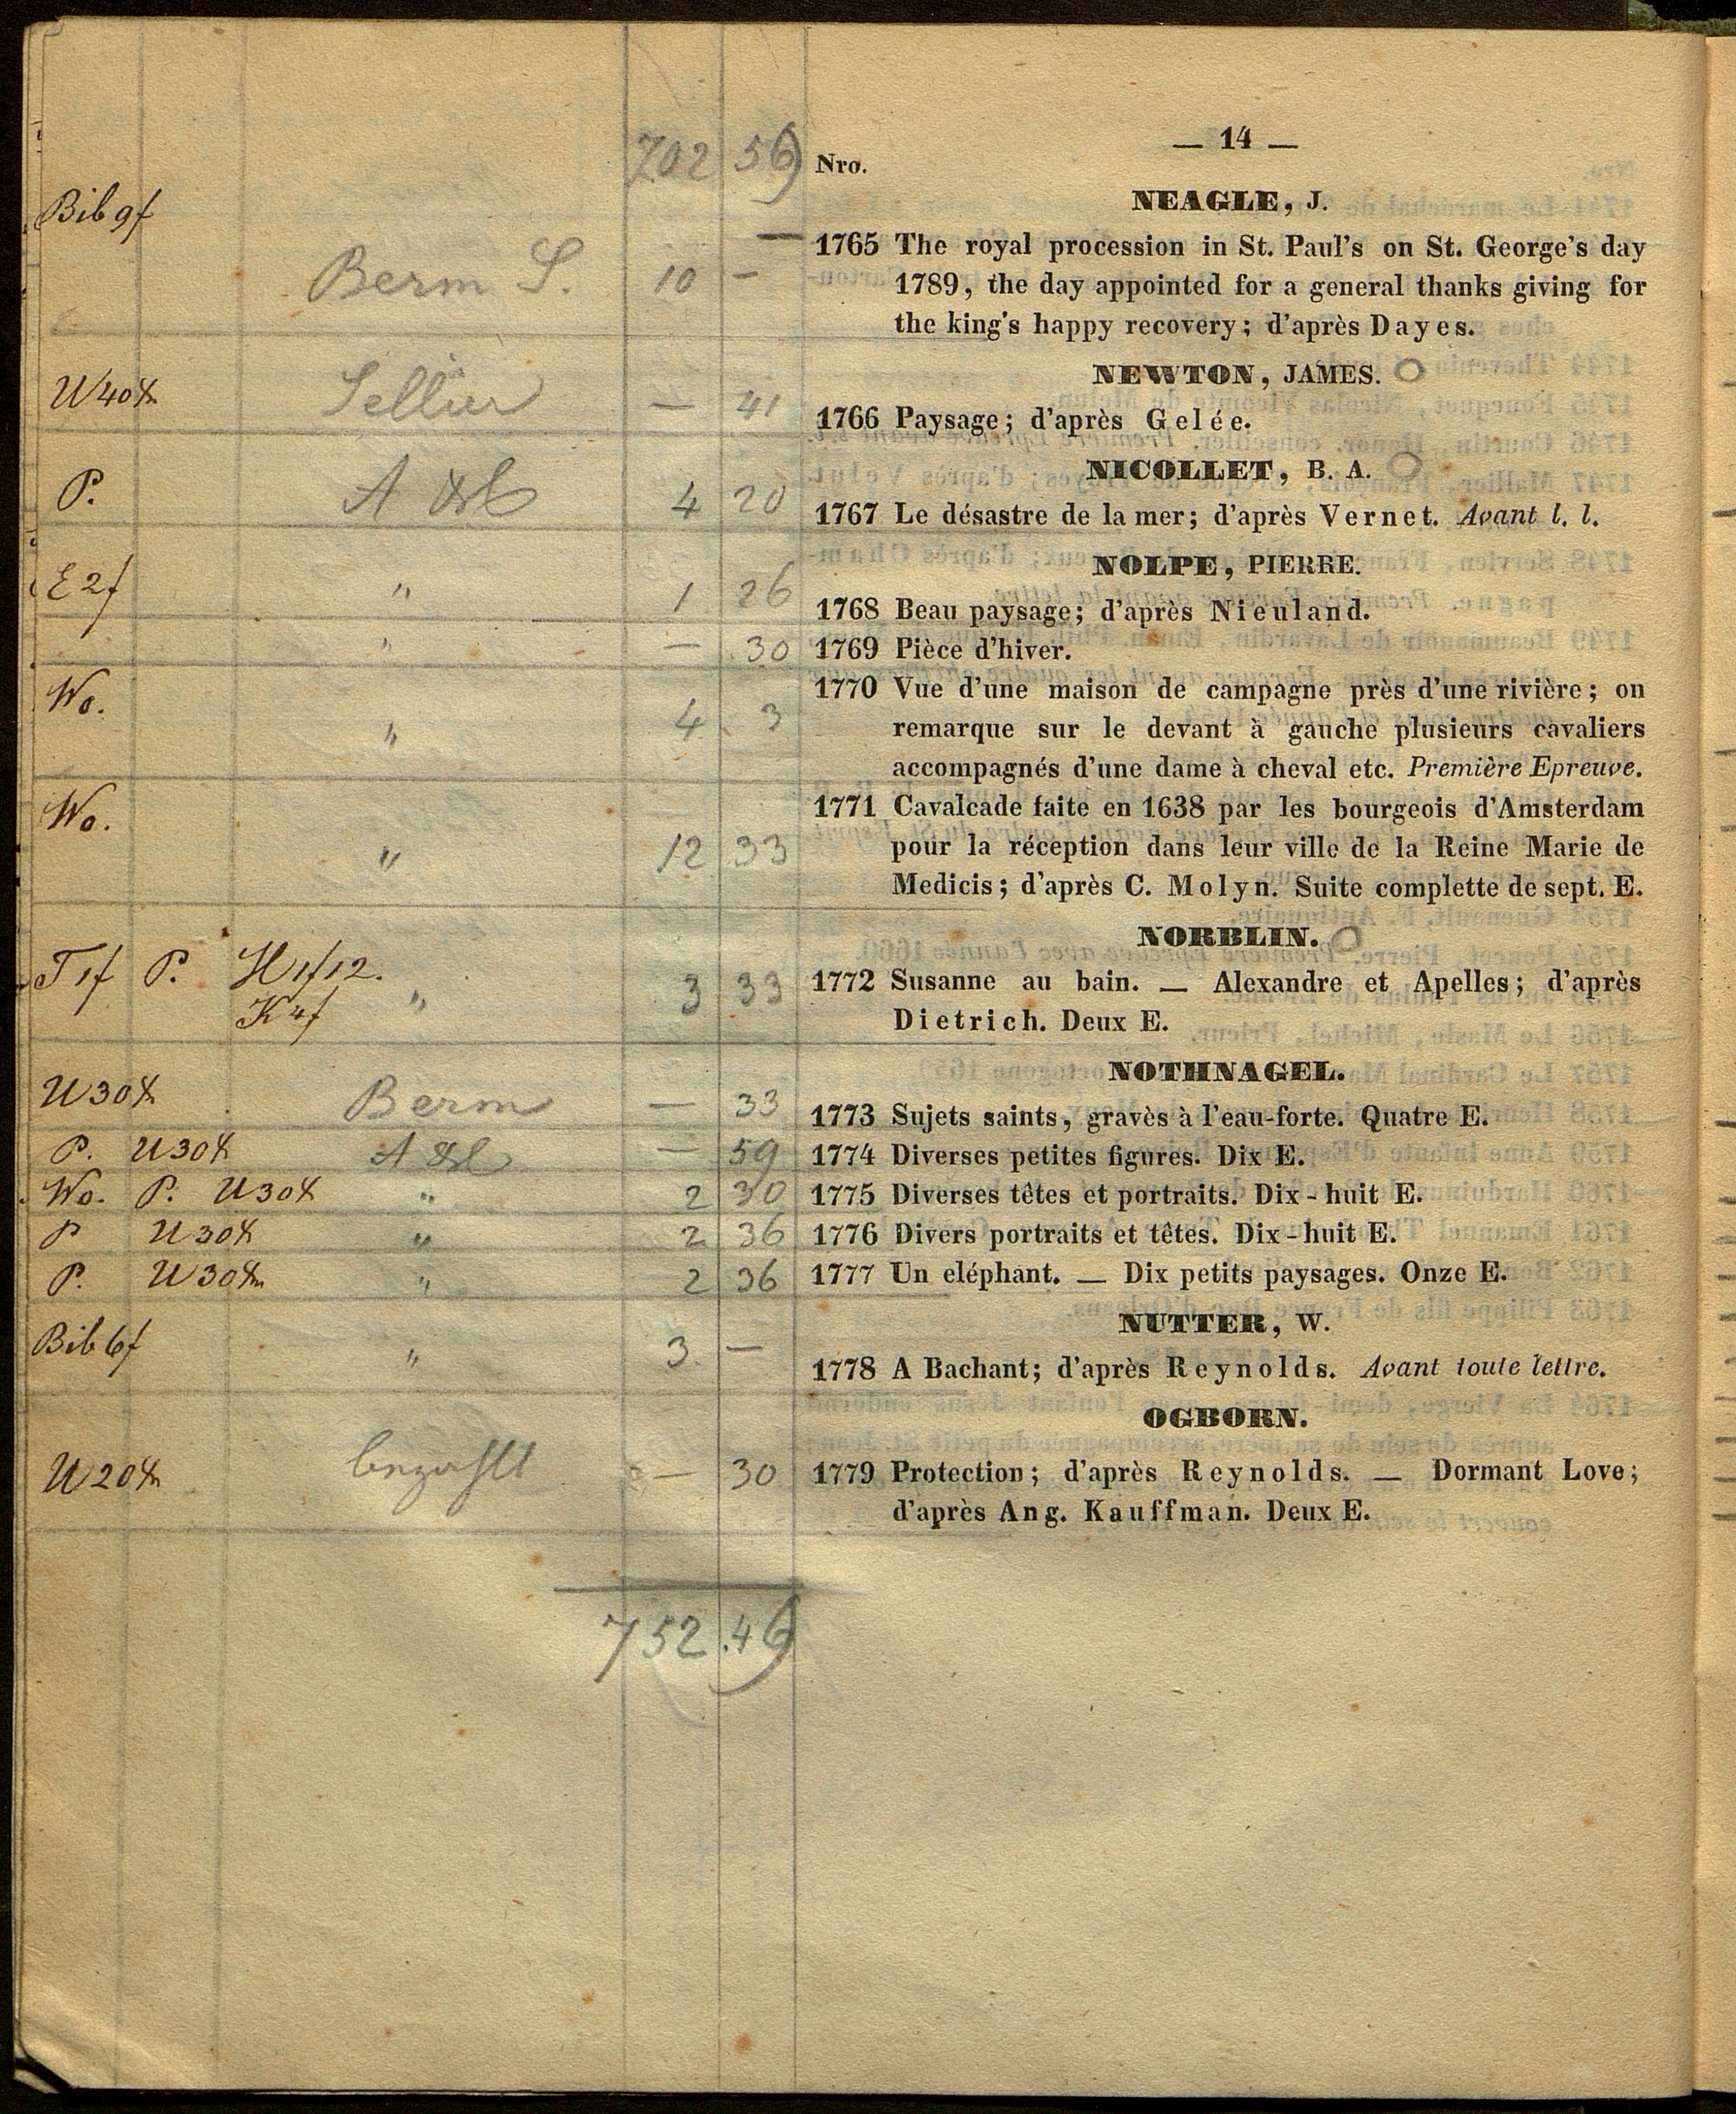 — 14 —
702 56
Nro.
NEAGLE, J.
Bib 9f
Berm S. 10 —
1765 The royal procession in St. Paul's on St. George's day
1789, the day appointed for a general thanks giving for
the king's happy recovery; d'après Dayes.
NEWTON, JAMES.
— 41
1766 Paysage; d'après Gelée.
NICOLLET, B. A.
P. 4 20
1767 Le désastre de la mer; d'après Vernet. Avant l. l.
NOLPE, PIERRE.
E 2f " 1 26
1768 Beau paysage; d'après Nieuland.
" — 30 1769 Pièce d'hiver.
Wo. " 4 3
1770 Vue d'une maison de campagne près d'une rivière; on
remarque sur le devant à gauche plusieurs cavaliers
accompagnés d'une dame à cheval etc. Première Epreuve.
Wo. " 12 33
1771 Cavalcade faite en 1638 par les bourgeois d'Amsterdam
pour la réception dans leur ville de la Reine Marie de
Medicis; d'après C. Molyn. Suite complette de sept. E.
NORBLIN.
T 1f P. H 1f12.
K 4f " 3 33
1772 Susanne au bain. — Alexandre et Apelles; d'après
Dietrich. Deux E.
NOTHNAGEL.
Berm — 33
1773 Sujets saints, gravès à l'eau-forte. Quatre E.
P. — 59 1774 Diverses petites figures. Dix E.
Wo. P. " 2 30 1775 Diverses têtes et portraits. Dix-huit E.
P " 2 36 1776 Divers portraits et têtes. Dix-huit E.
P. " 2 36 1777 Un eléphant. — Dix petits paysages. Onze E.
NUTTER, W.
Bib 6f " 3 —
1778 A Bachant; d'après Reynolds. Avant toute lettre.
OGBORN.
— 30
1779 Protection; d'après Reynolds. — Dormant Love;
d'après Ang. Kauffman. Deux E.
752.46